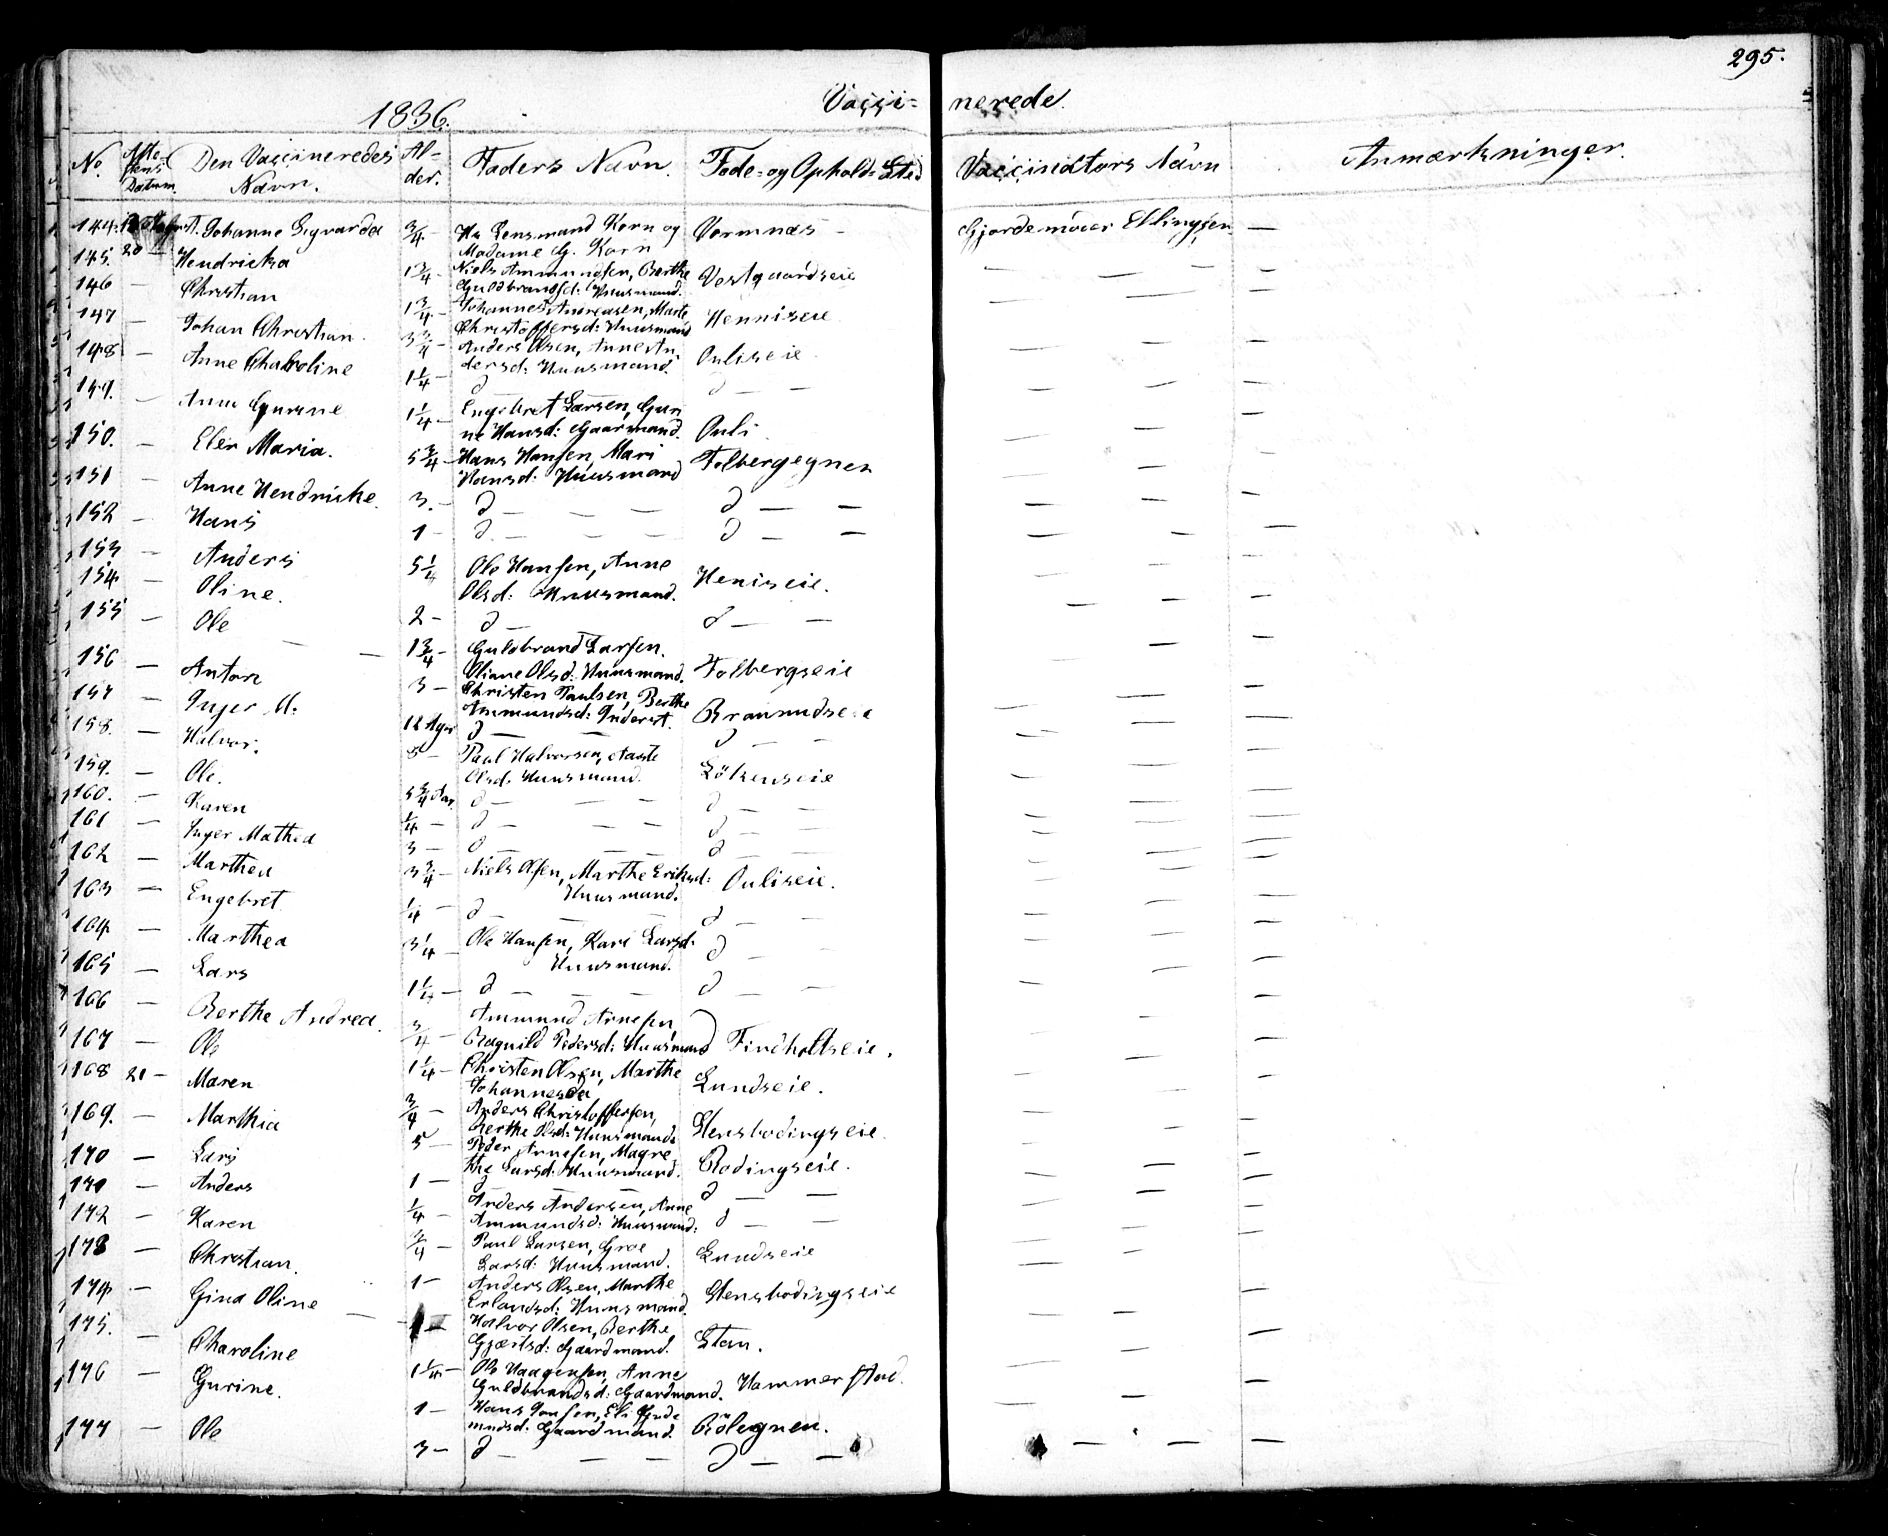 295.
1836. Vacci= nerede.
No. Atte- stens Datum. Den Vaccineredes Navn. Al- der. Faders Navn. Föde= og Ophold= Sted Vaccinators Navn Anmærkninger.
144. Johanne Sigvarda 3/4 — Hr Lensmand Korn og Madame G. Korn Vormnæs — Gjordemoder Ellingsen —
145. 20 — Hendricka 1 3/4 — Niels Ammundsen, Berthe Guldbrandsd: Huusmand. Vestgaardseie — — — —
146 — Christian 1 3/4 — Johannes Andreasen, Marte Christoffersd: Huusmand Henniseie — — —
147 — Johan Christian. 3 3/4 — Anders Olsen, Anne An- dersd: Huusmand. Ouliseie — — —
148 — Anne Charoline 1 1/4 — d — d — — — —
149. — Anne Gurine 1 1/4 — Engebret Larsen, Gun ne Hansd: Gaarmand. Ouli — — —
150. — Elen Maria. 5 3/4 — Hans Hansen, Mari Hansd: Huusmand Folbergegnen — — —
151 — Anne Hendricke 3. — d — — — d — — — — —
152 — Hans 1 — d. — — — d — — — — —
153 — Anders 5 1/4 Ole Hansen, Anne Olsd: Huusmand. Heniseie. — — —
154 — Oline. 2 — d — d — — — — —
155 — Ole 1 3/4 — Guldbrand Larsen. Oliane Olsd: Huusmand. Folbergseie — — —
156 — Anton 3 — Christen Paulsen, Berthe Ammundsd: Inderst. — — —
157 — Inger M: d — — d — — — — —
158. — Halvor. 5 — Paul Halvorsen, Olsd: Huusmand. Lökenseie — — —
159. — Ole. 5 3/4 Aar. d — — — d — — — — —
160. — Karen 1/4 — d — — — d — — — — —
161 — Inger Mathea 3 — d — — — d — — — — —
162 — Marthea 3 3/4 — Niels Olsen, Marthe Eriksd: Huusmand. Ouliseie. — — —
163 — Engebret 1/4 — d — — — d — — — — —
164 — Marthea 3 1/4 — Ole Hansen, Kari Larsd: Huusmand. d — — — —
165 — Lars 1 1/4 — d — — — d — — — — —
166 — Berthe Andrea. 3/4 — Ammund Arnesen, Ragnild Pedersd: Huusmand Findholtseie. — — —
167 — Ole 1 1/4 — Christen Olsen, Marthe Johannesd. Lundseie. — — —
168 21 — Maren 3/4 — Anders Christoffersen, Berthe Olsd: Huusmand. Stensbodingseie. — — —
169. — Marthia 5 — Peder Arnesen, Magre the Larsd: Huusmand. Rodingseie. — — —
170 — Lars 1 — d — — — d — — — — —
171 — Anders 1/4 — Anders Andersen, Anne Ammundsd: Huusmand: d — — — — —
172 — Karen 3/4 — Paul Larsen, Groe Larsd: Huusmand. Lundseie — — —
173 — Christian. 1 — Anders Olsen, Marthe Erlandsd: Huusmand. Stensbodingseie — — —
174 — Gina Oline — 1 — Halvor Olsen, Berthe Gjertsd: Gaardmand. — — —
175. — Charoline 1 1/4 — Ole Haagensen, Anne Guldbrandsd: Gaardmand. Hammerstad. — — —
176 — Gurine. 1 — Hans Eli Gudmundsd: Gaardmand. — — —
177 — Ole 3 — d — — — d — — — — —